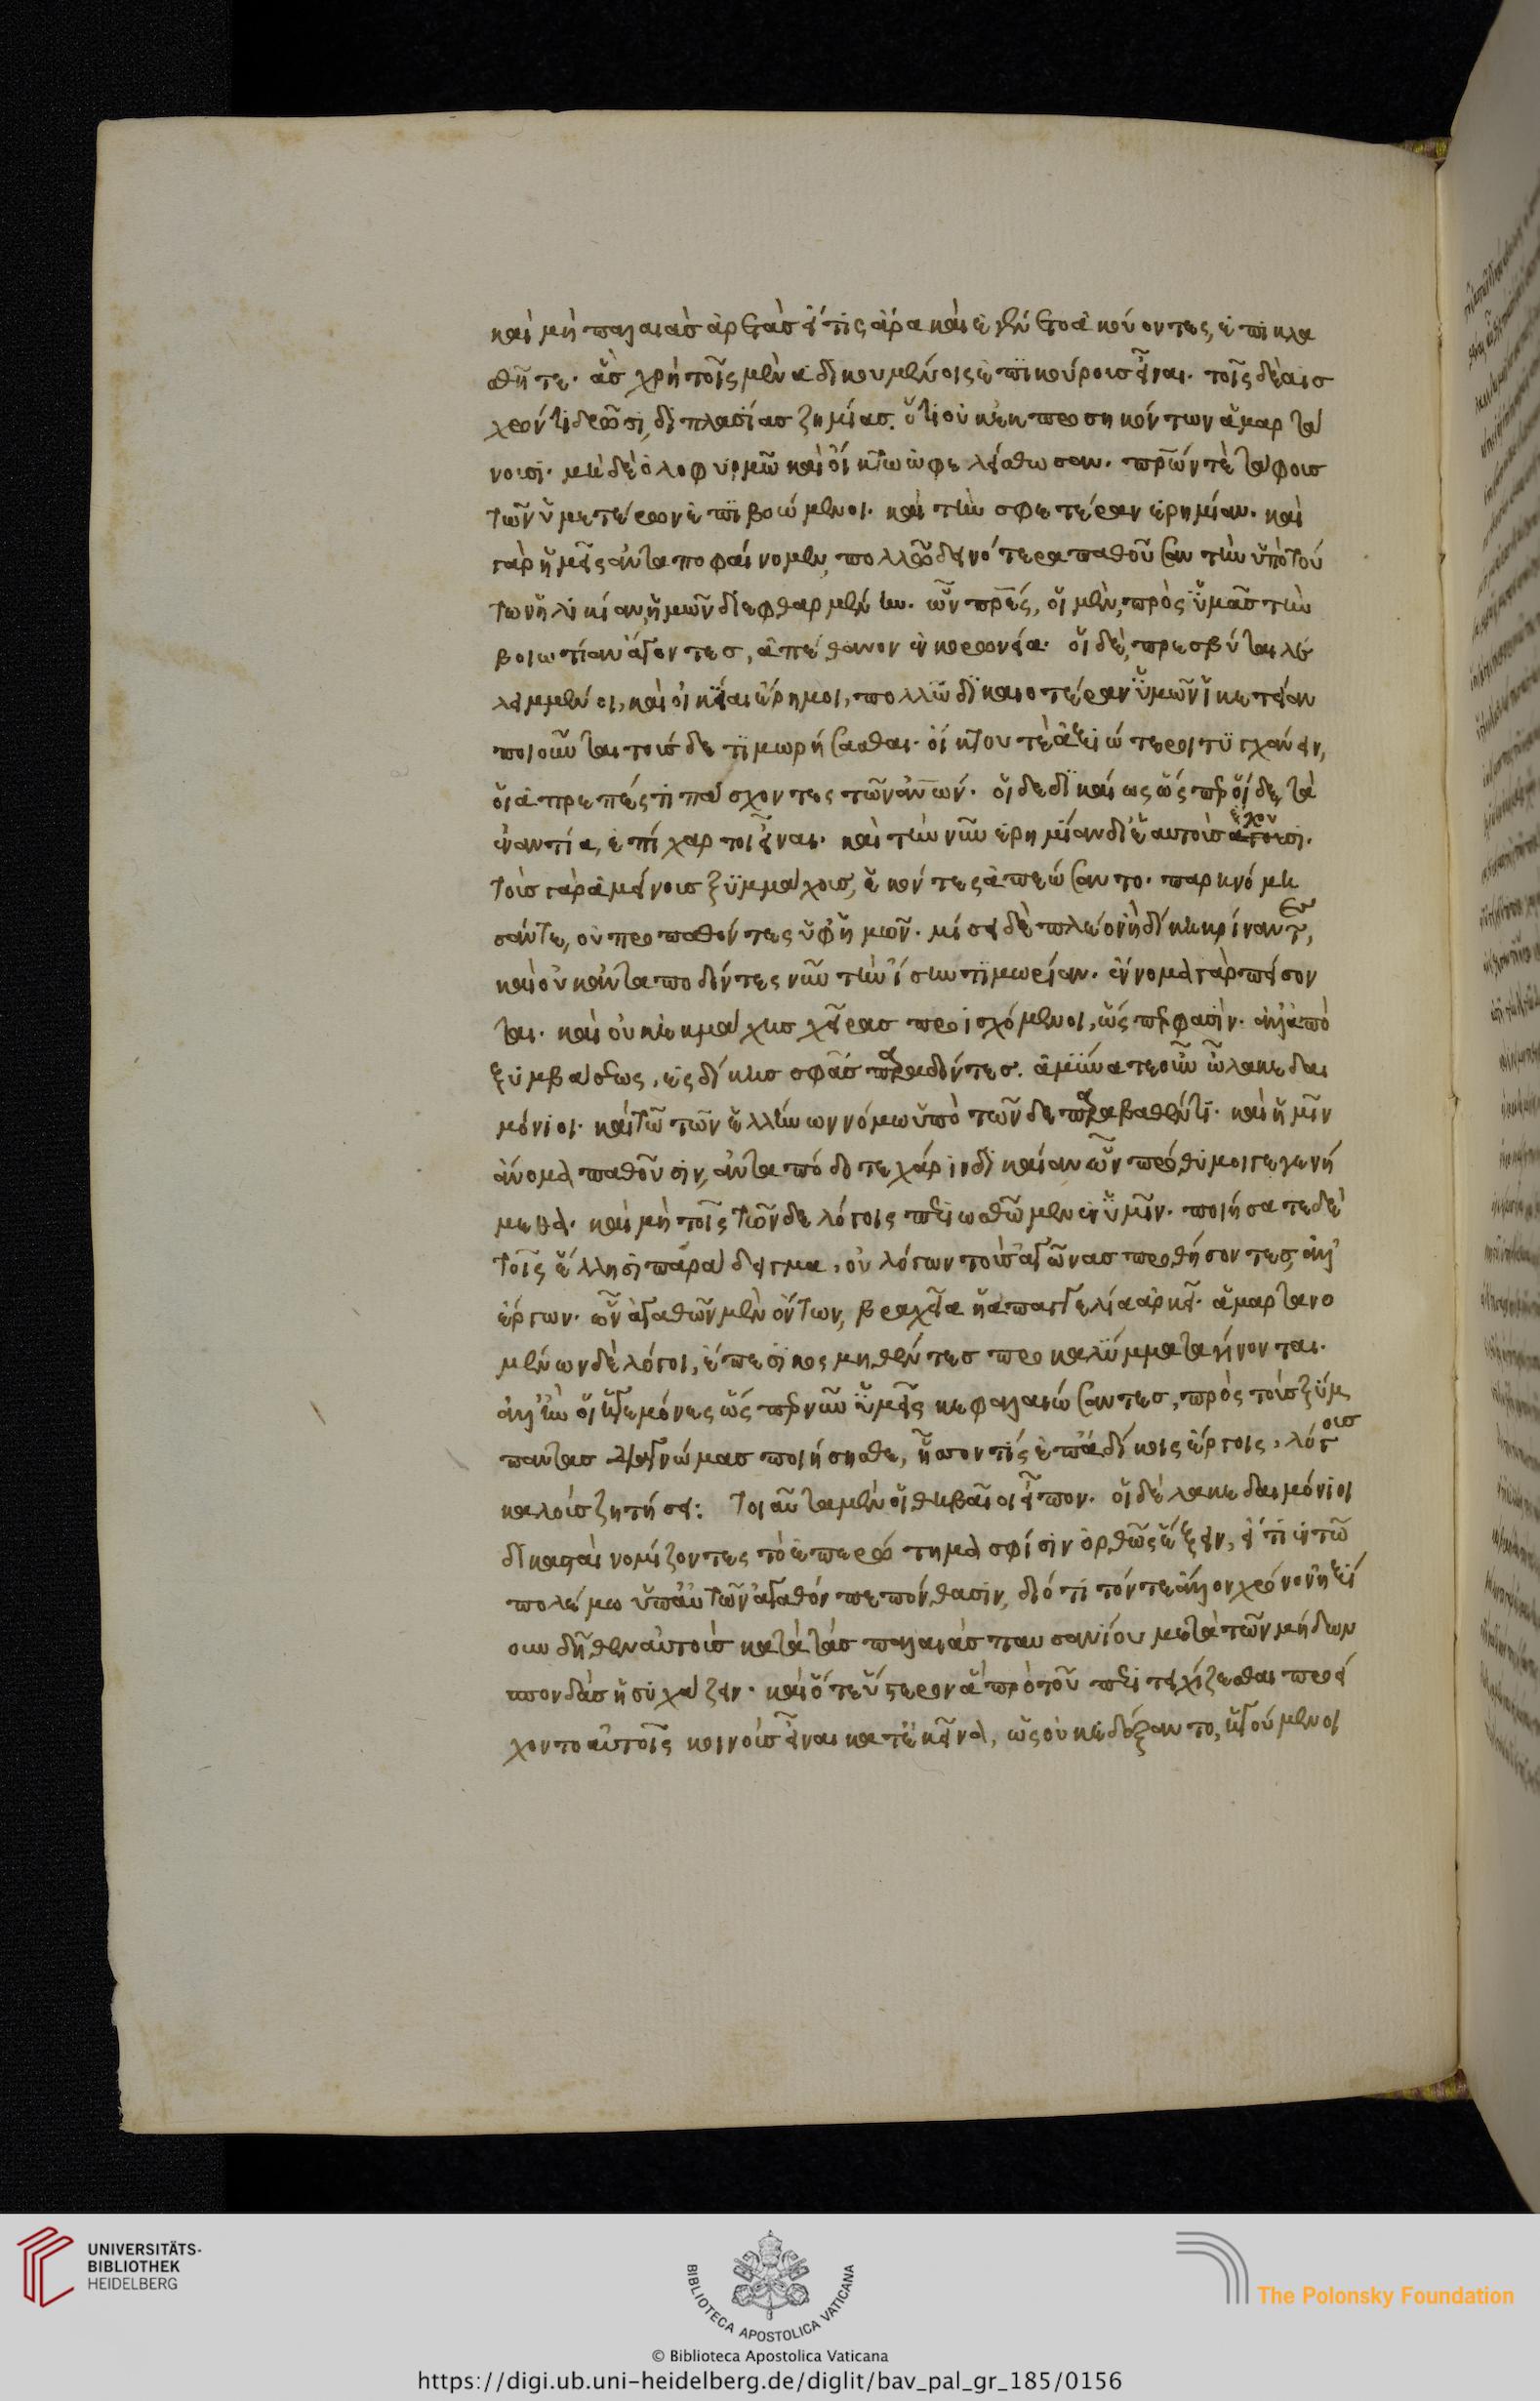 καὶ μὴ παλαιὰς ἀρετὰς εἴ τις ἄρα καὶ ἐγένετο ἀκούοντες, ἐπικλα
σθῆτε· ἃς χρὴ τοῖς μὲν ἀδικουμένοις ἐπικούροις εἶναι. τοῖς δὲ αἰσ
χρόν τι δρῶσι, διπλασίας ζημίας. ὅτι οὐκ ἐκ προσηκόντων ἁμαρτά
νουσι. μηδὲ ὀλοφυρμῶ καὶ οἴκτω ὠφελείσθωσαν. πρ̅ων τὲ τάφους
τῶν ὑμετέρων ἐπιβοώμενοι. καὶ τὴν σφετέραν ἐρημίαν. καὶ
γὰρ ἡμεῖς ἀνταποφαίνομεν, πολλῶ δεινότερα παθοῦσαν τὴν ὑπὸ τού
των ἡλικίαν ἡμῶν διεφθαρμένην. ὧν πρ̅ες, οἱ μὲν, πρὸς ὑμᾶς τὴν
βοιωτίαν ἄγοντες, ἀπέθανον ἐν κορωνεία. οἱ δὲ, πρεσβύται λε
λειμμένοι, καὶ οἰκίαι ἔρημοι, πολλῶ δικαιοτέραν ὑμῶν ἱκετείαν
ποιοῦνται τούσδε τιμωρήσασθαι. οἴκτου τὲ ἀξιώτεροι τυγχάνειν,
οἱ ἀπρεπές τι πάσχοντες τῶν ἀν̅ων. οἱ δὲ δικαίως ὥσπερ οἵδε, τὰ
ἐναντία, ἐπίχαρτοι εἶναι. καὶ τὴν νῦν ἐρημίαν δι' ἑαυτοὺς ἔχου
ἄγουσι.
τοὺς γὰρ ἀμείνους ξυμμάχους, ἑκόντες ἀπεώσαντο. παρηνόμη
σάν τε, οὐ προπαθόντες ὑφ' ἡμῶν. μίσει δὲ πλέον ἢ δίκη κρίναντες,
καὶ οὐκ ἀνταποδόντες νῦν τὴν ἴσην τιμωρίαν. ἔννομα γὰρ πείσον
ται. καὶ οὐκ ἐκ μάχης χεῖρας προϊσχόμενοι, ὥσπερ φασὶν. ἀλλ' ἀπὸ
ξυμβάσεως, εἰς δίκην σφᾶς παραδόντες. ἀμύνατε οὖν ὦ λακεδαι
μόνιοι. καὶ τῶ τῶν ἑλλήνων νόμω ὑπὸ τῶνδε παραβαθέντι. καὶ ἡμῖν
ἄνομα παθοῦσιν, ἀνταπόδοτε χάριν δικαίαν ὧν πρόθυμοι γεγενή
μεθα. καὶ μὴ τοῖς τῶνδε λόγοις περιωσθῶμεν ἐν ὑμῖν. ποιήσατε δὲ
τοῖς ἕλλησι παράδειγμα, οὐ λόγων τοὺς ἀγῶνας προθήσοντες, ἀλλ'
ἔργων. ὧν ἀγαθῶν μὲν ὄντων, βραχεῖα ἡ ἀπαγγελία ἀρκεῖ. ἁμαρτανο
μένων δὲ λόγοι, ἔπεσι κοσμηθέντες προκαλύμματα γίνονται.
ἀλλ' ἢν οἱ ἡγεμόνες ὥσπερ νῦν ὑμεῖς κεφαλαιώσαντες, πρὸς τοὺς ξύμ
παντας διαγνώμας ποιήσησθε, ἧσσον τις ἐπ' ἀδίκοις ἔργοις, λόγους
καλοὺς ζητήσει: τοιαῦτα μὲν οἱ θηβαῖοι εἶπον. οἱ δὲ λακεδαιμόνιοι
δικασταὶ νομίζοντες τὸ ἐπερώτημα σφίσιν ὀρθῶς ἕξειν, εἴ τι ἐν τῶ
πολέμω ὑπ' αὐτῶν ἀγαθόν πεπόνθασιν, διότι τόν τε ἄλλον χρόνον ἠξί
ουν δῆθεν αὐτοὺς κατὰ τὰς παλαιὰς παυσανίου μετὰ τῶν μήδων
σπονδὰς ἡσυχάζειν. καὶ ὅτε ὕστερον ἃ πρὸ τοῦ περιτειχίζεσθαι προεί
χοντο αὐτοῖς κοινοὺς εἶναι κατ' ἐκεῖνα, ὡς οὐκ ἐδέξαντο, ἡγούμενοι
UNIVERSITÄTS-
BIBLIOTHEK
HEIDELBERG
BIBLIOTECA APOSTOLICA VATICANA
The Polonsky Foundation
© Biblioteca Apostolica Vaticana
https://digi.ub.uni-heidelberg.de/diglit/bav_pal_gr_185/0156